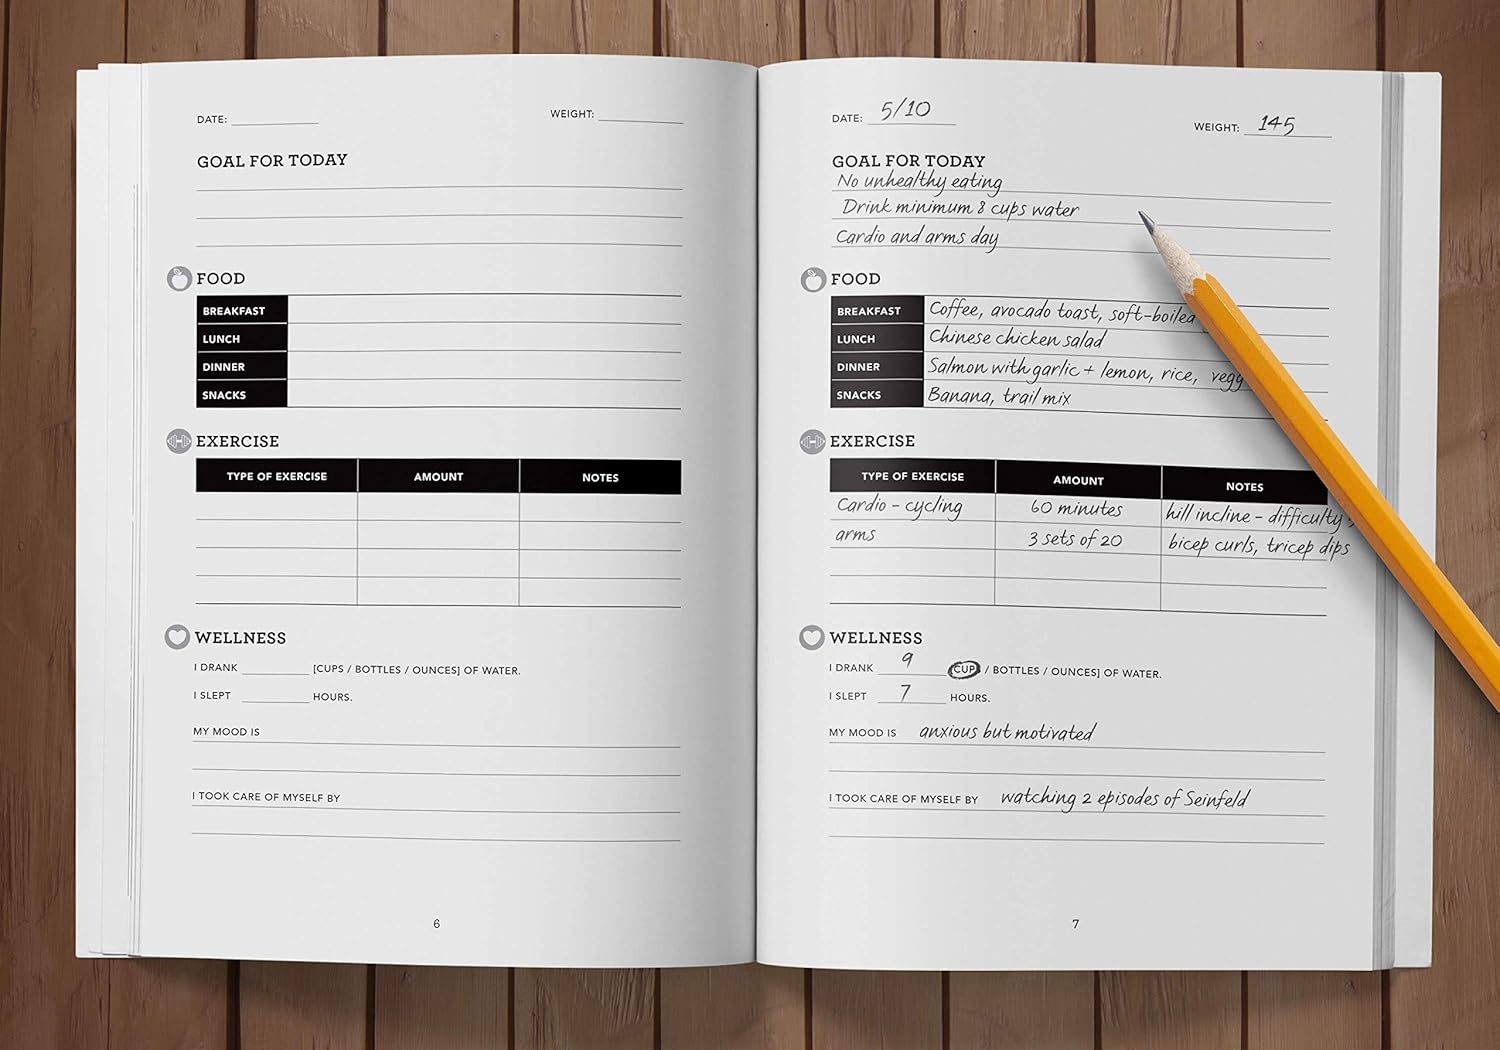 DATE:
WEIGHT:
GOAL FOR TODAY
FOOD
BREAKFAST
LUNCH
DINNER
SNACKS
EXERCISE
TYPE OF EXERCISE AMOUNT NOTES
WELLNESS
I DRANK [CUPS / BOTTLES / OUNCES] OF WATER.
I SLEPT HOURS.
MY MOOD IS
I TOOK CARE OF MYSELF BY
6
DATE: 5/10
WEIGHT: 145
GOAL FOR TODAY
No unhealthy eating
Drink minimum 8 cups water
Cardio and arms day
FOOD
BREAKFAST Coffee, avocado toast, soft-boiled
LUNCH Chinese chicken salad
DINNER Salmon with garlic + lemon, rice, vegg
SNACKS Banana, trail mix
EXERCISE
TYPE OF EXERCISE AMOUNT NOTES
Cardio - cycling 60 minutes hill incline - difficulty
arms 3 sets of 20 bicep curls, tricep dips
WELLNESS
I DRANK 9 CUPS / BOTTLES / OUNCES] OF WATER.
I SLEPT 7 HOURS.
MY MOOD IS anxious but motivated
I TOOK CARE OF MYSELF BY watching 2 episodes of Seinfeld
7